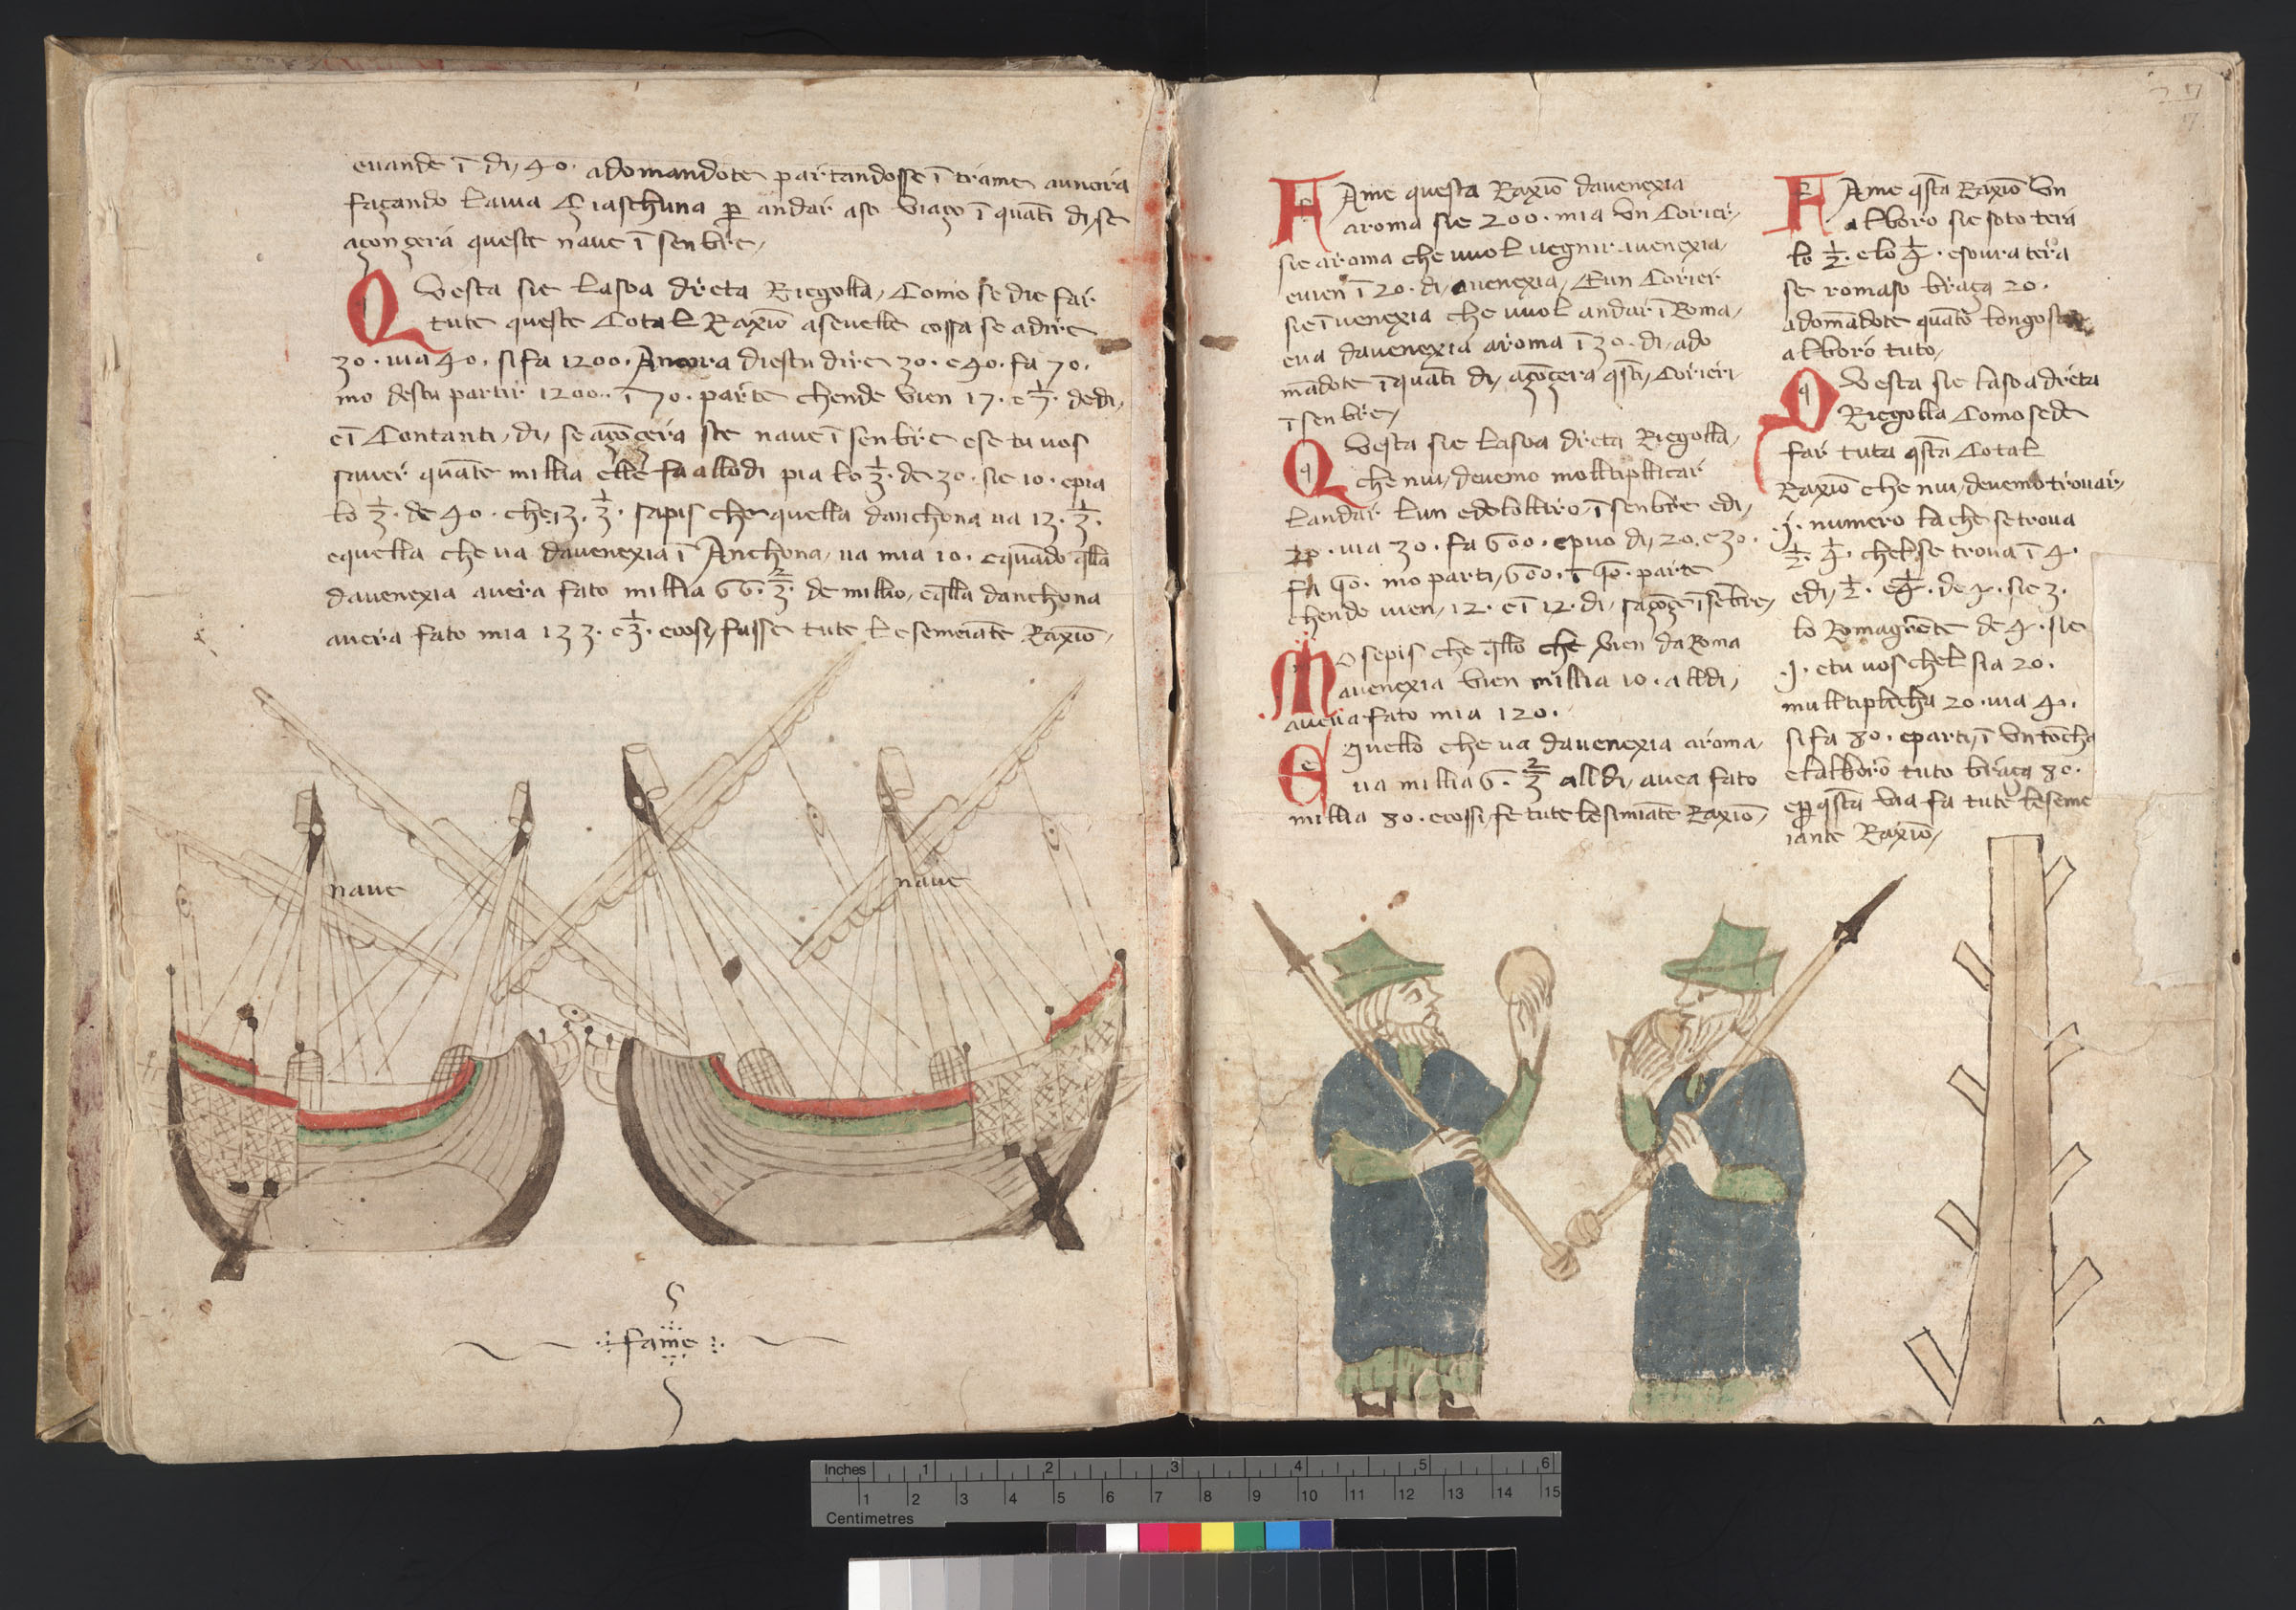 euande ī di, 40. adomandote partandosse ī trame aun ora
façando lauia Ziaschuna ꝑ andar aso Viaço ī quāti di, se
açonçerà queste naue ī senbre,
Questa sie la soa dreta Riegolla, Como se die far
tute queste Cotal Raxiō aseuelle cossa se a dire
30. uia 40. si fa 1200. Ancora diestu dire 30. e 40. fa 70.
mo destu partir 1200.. ī 70. parte chende Vien 17. e 1/7. dedi,
e ī Contanti, di, se açōçera ste naue ī senbre e se tu uos
sauer quāte millia elle fa allodi pia lo 1/3. de 30. sie 10. epia
lo 1/3. de 40. che 13. 1/3. sapis che quella danchona ua 13. 1/3.
equella che ua dauenexia ī Anchona, ua mia 10. e quādo q̄lla
dauenexia auera fato millia 66. 2/3. de millio, e q̄lla danchona
auera fato mia 133. e 1/3. ecosi, fasse tute le semeiāte Raxiō,
naue
naue
fame
FAme questa Raxiō dauenexia
aroma sie 200. mia Vn Corier,
sie aroma che uuol uegnir auenexia,
euien ī 20. di, auenexia, Eun Corier
sie ī uenexia che uuol andar ī Roma,
eua dauenexia aroma ī 30. di, ado
mādote ī quāti di, açōçera q̄sti, Corieri
ī senbre,
Questa sie la soa dreta Riegolla,
che nui, deuemo molltipllicar
landar lun e delolltro, ī senbre e di,
20. uia 30. fa 600. epuo di, 20. e 30.
fa 50. mo parti, 600. ī 50. parte
chende uien, 12. e ī 12. di, saçōçe ī sēbre,
Mo sepis che q̄llo che Vien da Roma
auenexia Vien millia 10. alldi,
auera fato mia 120.
E quello che ua dauenexia aroma,
ua millia 6. 2/3 alldi, auea fato
millia 80. ecossi, fe tute le simiāte Raxiō,
FAme q̄sta Raxiō Vn
alboro sie soto terà
lo 1/2. e lo 1/4. e soura tera
se romaso braça 20.
adomādote quāto longo
alboro tuto,
Questa sie la soa dreta
Riegolla Como se de
far tuta q̄sta Cotal
Raxiō che nui, deuemo trouar,
.j. numero la che se troua
1/2. 1/4. chel se troua ī 4.
e di, 1/2. e 1/4. de 4. sie 3.
lo Romagnēte de 4. sie
.j. e tu uos chel sia 20.
mulltiplicha 20. uia 4.
si fa 80. eparti, ī Vn tocha
e lalboro tuto braça 80.
eꝑ q̄sta via fa tute le seme
iante Raxiō,
Inches 1 2 3 4 5 6
1 2 3 4 5 6 7 8 9 10 11 12 13 14 15
Centimetres